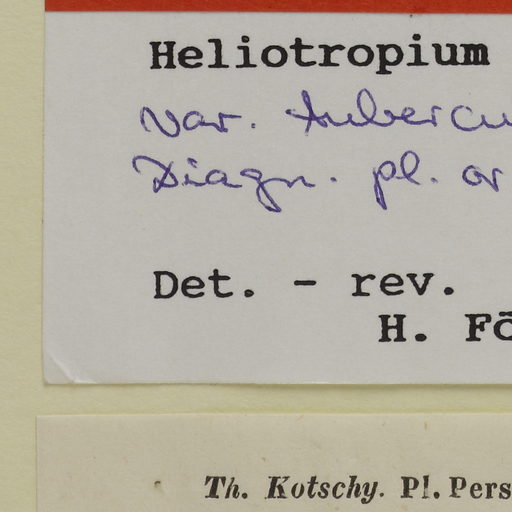 Heliotropium
var. tubercu
Diagn. pl. or
Det. - rev.
H. Fö
Th. Kotschy. Pl. Pers